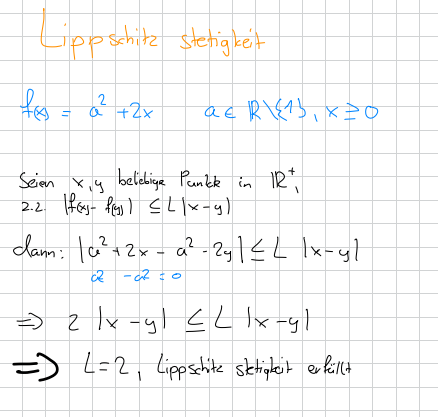 Lippschitz stetigkeit
f(x) = a² + 2x a ∈ ℝ\{1}, x ≥ 0
Seien x,y beliebige Punkte in ℝ⁺,
z.z. |f(x) - f(y)| ≤ L |x-y|
dann: |a² + 2x - a² - 2y| ≤ L |x-y|
a² - a² = 0
⇒ 2 |x-y| ≤ L |x-y|
⇒ L=2, Lippschitz stetigkeit erfüllt